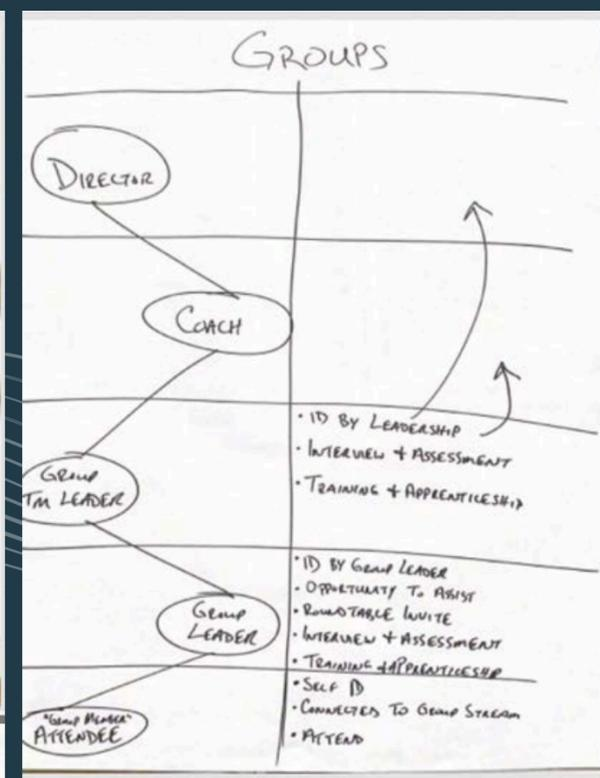 GROUPS
DIRECTOR
COACH
GROUP
TM LEADER
• ID BY LEADERSHIP
• INTERVIEW + ASSESSMENT
• TRAINING + APPRENTICESHIP
GROUP
LEADER
• ID BY GROUP LEADER
• OPPORTUNITY TO ASSIST
• ROUNDTABLE INVITE
• INTERVIEW + ASSESSMENT
• TRAINING + APPRENTICESHIP
"GROUP MEMBER"
ATTENDEE
• SELF ID
• CONNECTED TO GROUP STREAM
• ATTEND